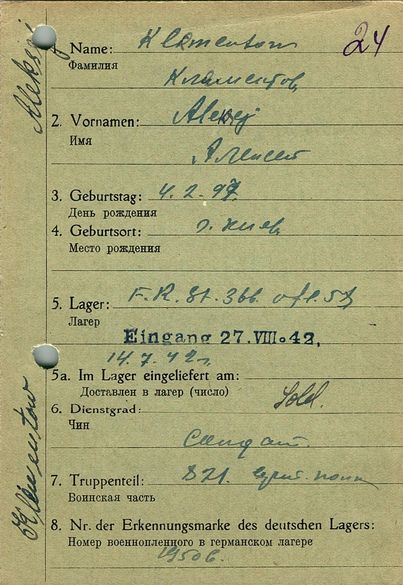 24
Aleksej
1. Name: Klamentow
Фамилия
Кламентов
2. Vornamen: Aleksej
Имя
Алексей
3. Geburtstag: 4.2.97
День рождения
4. Geburtsort: г. Киев
Место рождения
5. Lager:
Лагер
Eingang 27. VIII. 42.
14.7.42г.
5a. Im Lager eingeliefert am:
Доставлен в лагер (число)
6. Dienstgrad: Sold.
Чин
Солдат.
7. Truppenteil: 821.
Воинская часть
8. Nr. der Erkennungsmarke des deutschen Lagers:
Номер военнопленного в германском лагере
Klamentow